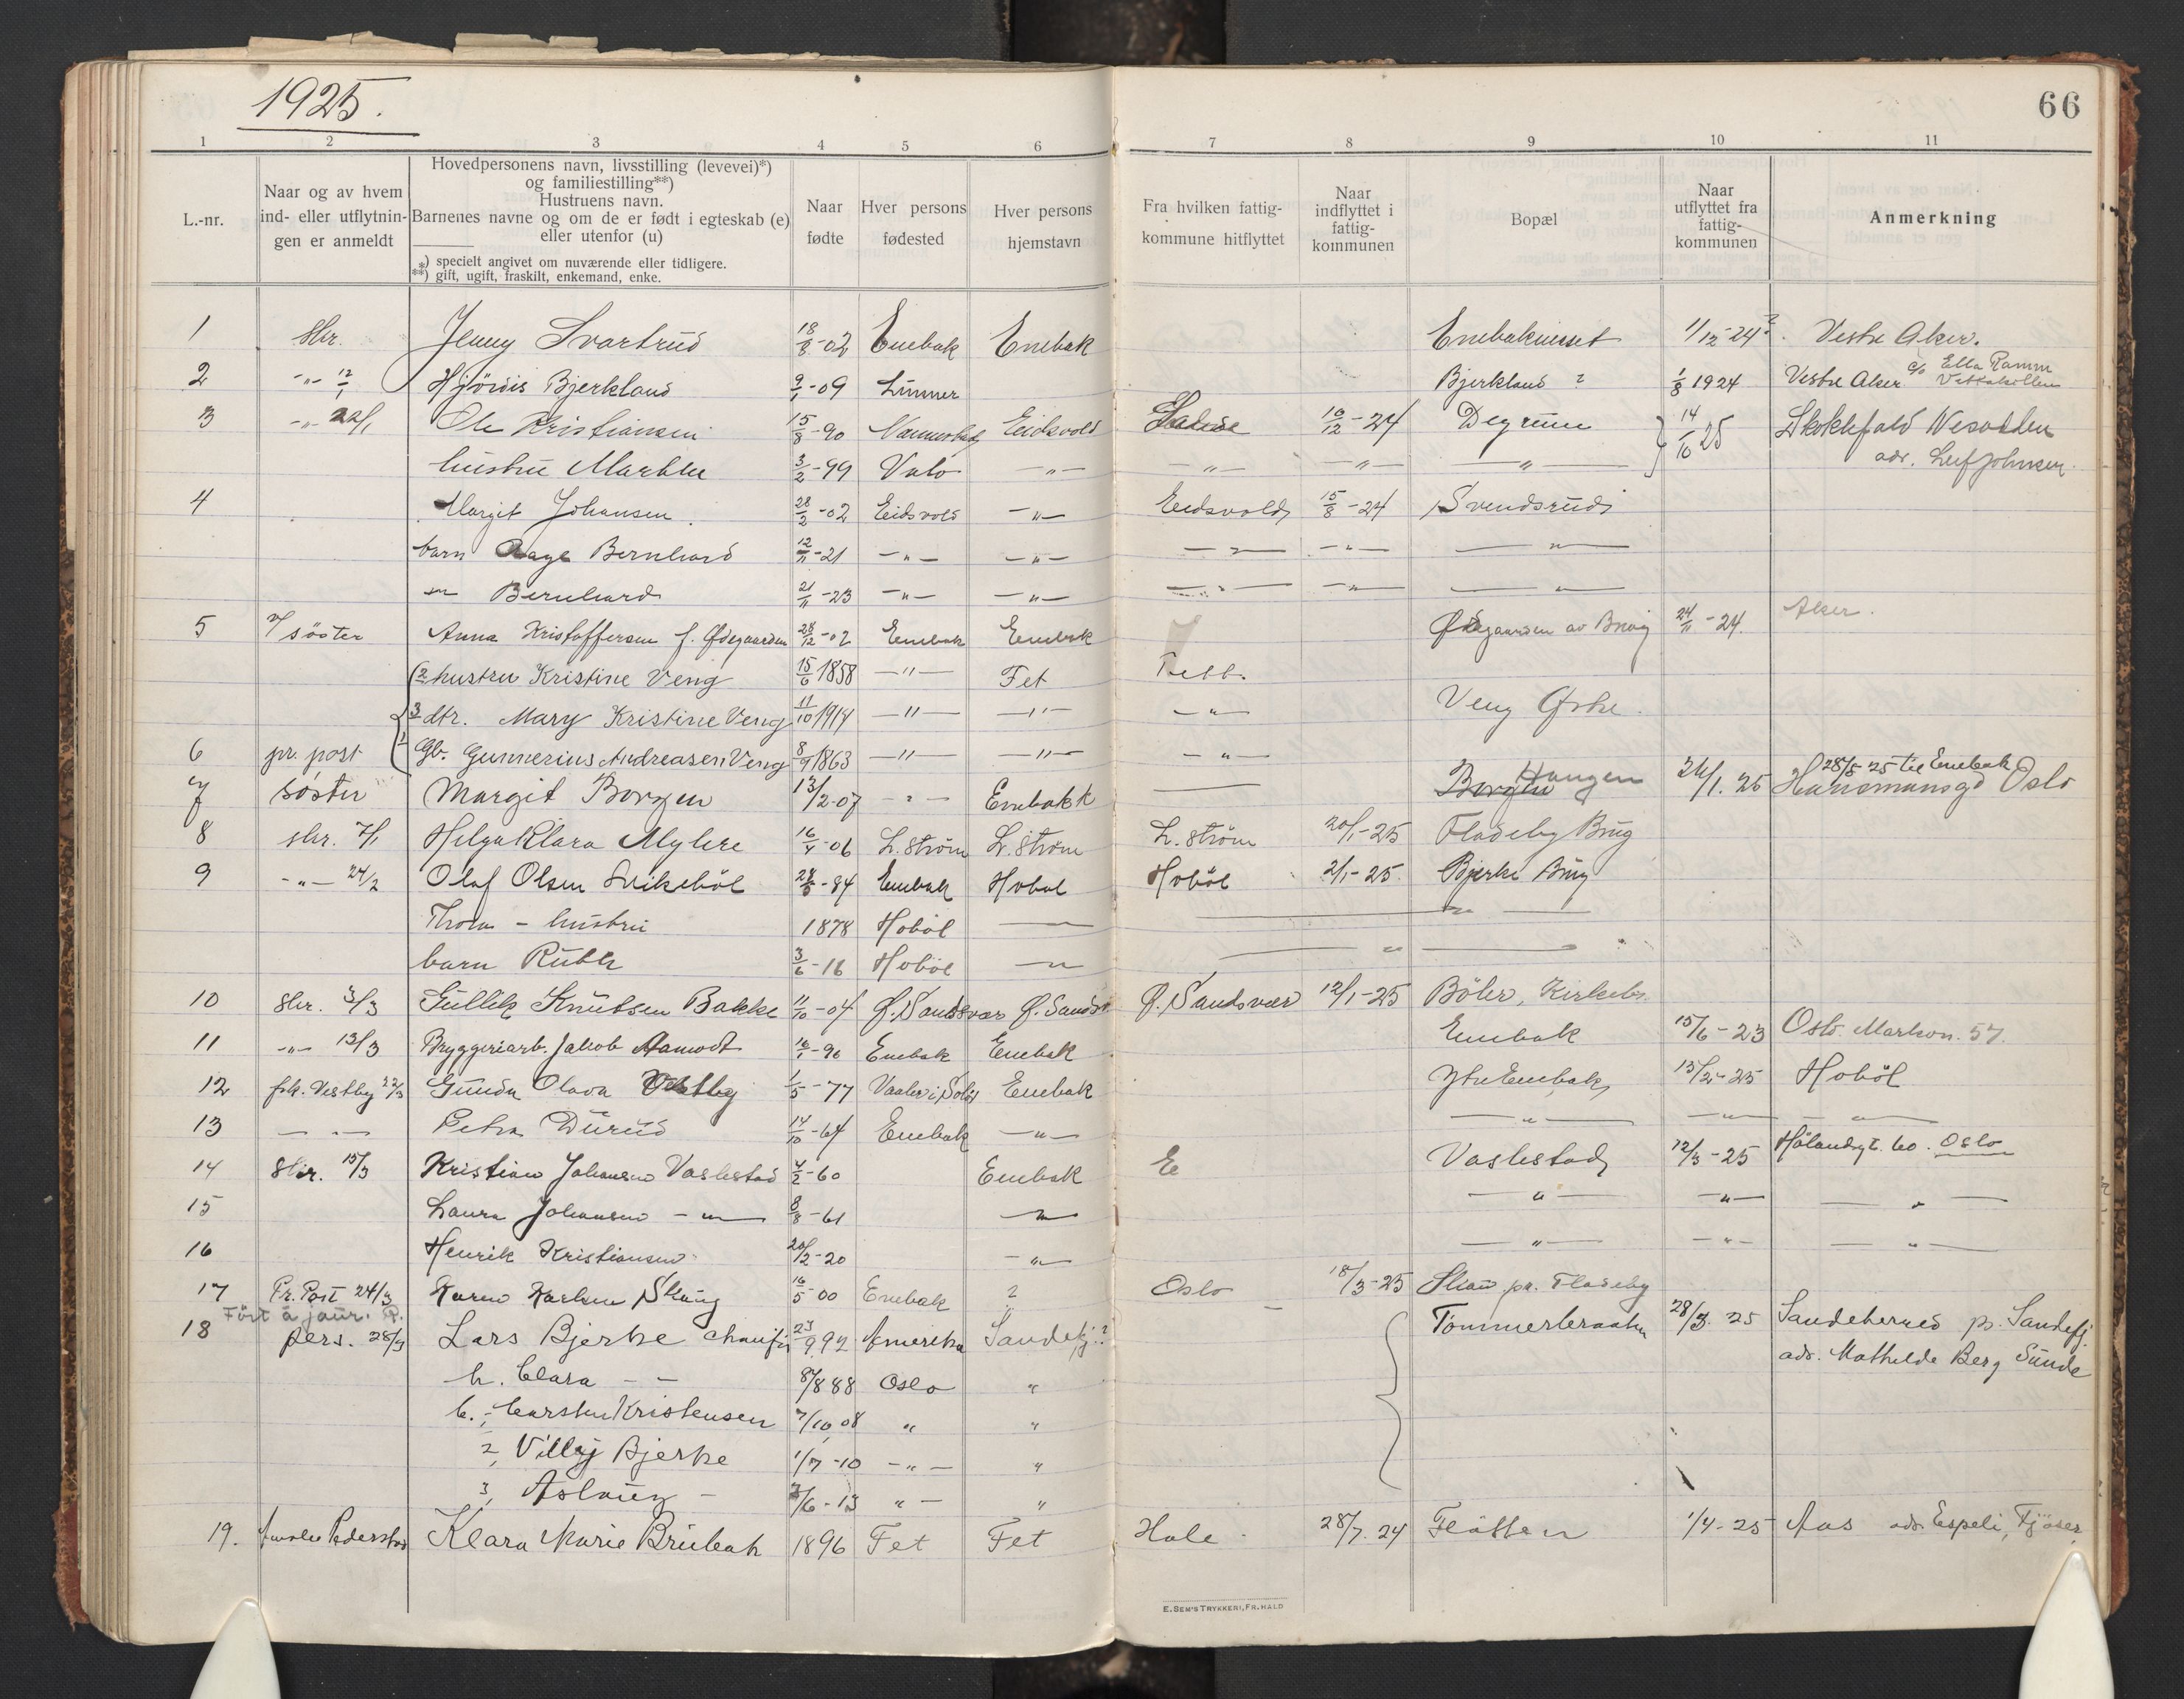 1925.
66
1 2 3 4 5 6 7 8 9 10 11
L.-nr.
Naar og av hvem
ind- eller utflytnin-
gen er anmeldt
Hovedpersonens navn, livsstilling (levevei)*)
og familiestilling**)
Hustruens navn.
Barnenes navne og om de er født i egteskab (e)
eller utenfor (u)
*) specielt angivet om nuværende eller tidligere.
**) gift, ugift, fraskilt, enkemand, enke.
Naar
fødte
Hver persons
fødested
Hver persons
hjemstavn
Fra hvilken fattig-
kommune hitflyttet
Naar
indflyttet i
fattig-
kommunen
Bopæl
Naar
utflyttet fra
fattig-
kommunen
Anmerkning
1 skr. Jenny Svartrud 18/8-02 Enebak Enebak 1/12-24? Vestre Aker.
2 -"- 12/1 Hjördis Bjerkland 9/1-09 Lunner Bjerkland ? 1/8 1924 Vestre Aker c/o Ella Ramm
3 -"- 22/1 Ole Kristiansen 15/8-90 Eidsvold 10/12-24 Degrum 14/10 25 Skoklefald Nesodden
hustru Marthe 3/2-99 Valo -"- -"- -"- -"- adr. Leif Johnsen.
4 Margit Johansen. 28/2-02 Eidsvold -"- Eidsvold 15/8-24 Svendsrud
barn Aage Bernhard 12/11-21 -"- -"- -"- -"- -"-
-"- Bernhard 21/11-23 -"- -"- -"- -"- -"-
5 söster Anna Kristoffersen f. Ødegaarden 28/12-02 Enebak Enebak Ødegaarden av Brug 24/11-24. Aker.
2 hustru Kristine Veng 15/6 1858 -"- Fet Fett.
3 dtr. Mary Kristine Veng 11/10 1914 -"- -"- -"- Veng Østre.
6 pr. post 1 Gb. Gunnerius Andreasen Veng 8/9 1863 -"- -"- -"-
7 söster Margit Borgen 13/2-07 -"- Enebakk Borgen Haugen 24/1. 25 28/5 25 til Enebak Oslo
8 skr. 7/1 Helga Klara Myhre 16/4-06 L.ström L.ström L.ström 20/1-25 Fladeby Brug
9 -"- 24/2 Olaf Olsen 28/8-84 Enebak Hobøl Hobøl 2/1-25. Bjerke Brug
Thora - hustru 1878 Hobøl -"-
barn Ruth 3/6-16 Hobøl -"-
10 skr. 3/3 Gullik Knutsen Bakke 11/10-04 Ø.Sandsvær Ø.Sandsv. Ø.Sandsvær 12/1-25 Böler, Kirkeb.
11 -"- 13/3 Bryggeriarb. Jakob Aamodt 16/1-96 Enebak Enebak Enebak 15/6-23 Oslo. Markvn. 57.
12 frk. Vestby 22/3 Gunda Olava Vestby 1/5-77 Vaaler i Solør Enebak Ytre Enebak 15/2-25 Hobøl
13 -"- Petra Durud 14/10-64 Enebak -"- -"- -"- -"-
14 skr. 15/3 Kristian Johansen Vaslestad 4/2-60 Enebak E Vaslestad 12/3-25 Hölandsgt. 60. Oslo
15 Laura Johansen -"- 8/8-61 -"- -"- -"- -"-
16 Henrik Kristiansen 20/2-20 -"- -"- -"- -"-
17 Pr. Post 24/3 Karen Karlsen Skaug 16/5 00 Enebak ? Oslo 18/3-25 Skau pr. Fladeby
Fört á jour.
18 pers. 28/3 Lars Bjerke chauffør 23/9 92 Amerika Sandefj.? Tømmerbraaten 28/3. 25 Sandeherred pr. Sandefj.
h. Clara - - 8/8 88 Oslo " adr. Mathilde Berg Sunde
b. 1, Carsten Kristensen 7/10,08 " "
2, Villy Bjerke 1/7-10 -"- "
3, Aslaug - 3/6-13 " - "
19. Amalie Pederstad Klara Marie Brubak 1896 Fet Fet Hole 28/7. 24 Flaatten 1/4-25 Aas adr. Espeli, Tjøser
E. SEM'S TRYKKERI, FR.HALD